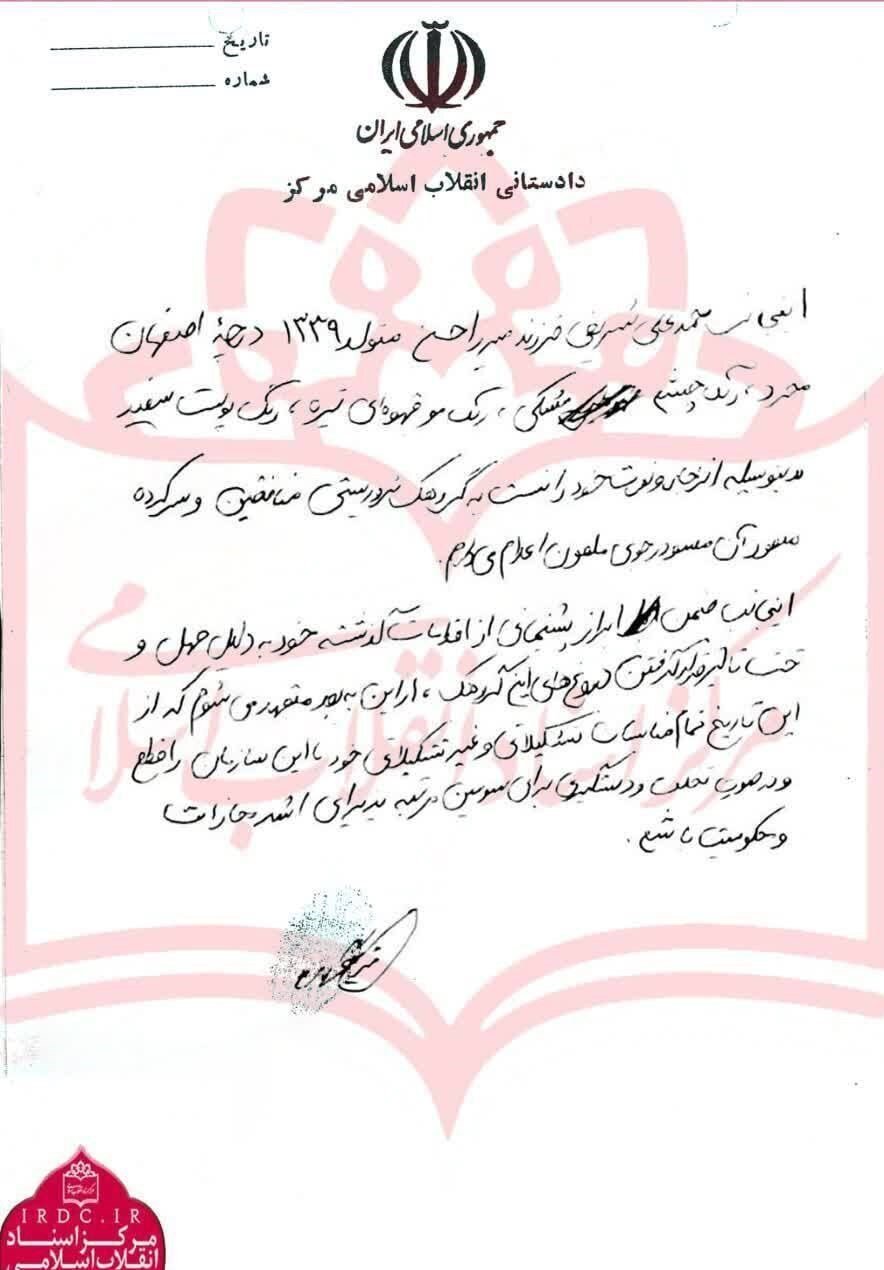 تاریخ
شماره
جمهوری اسلامی ایران
دادستانی انقلاب اسلامی مرکز
اینجانب محمدعلی شریفی فرزند میرزا حسن متولد ۱۳۳۹ درچهٔ اصفهان
مجرد، رنگ چشم مشکی، رنگ مو قهوه‌ای تیره، رنگ پوست سفید
بدینوسیله انزجار و نفرت خود را نسبت به گروهک تروریستی منافقین و سرکرده
آن مسعود رجوی ملعون اعلام می‌دارم.
اینجانب ضمن ابراز پشیمانی از اقدامات گذشته خود به دلیل جهل و
تحت تاثیر قرار گرفتن دروغ‌های این گروهک، از این به بعد متعهد می‌شوم که از
این تاریخ تمام مناسبات تشکیلاتی و غیر تشکیلاتی خود با این سازمان را قطع
و در صورت تخلف و دستگیری برای سومین مرتبه پذیرای اشد مجازات
و محکومیت باشم.
مرکز اسناد انقلاب اسلامی
IRDC.IR
مرکز اسناد
انقلاب اسلامی